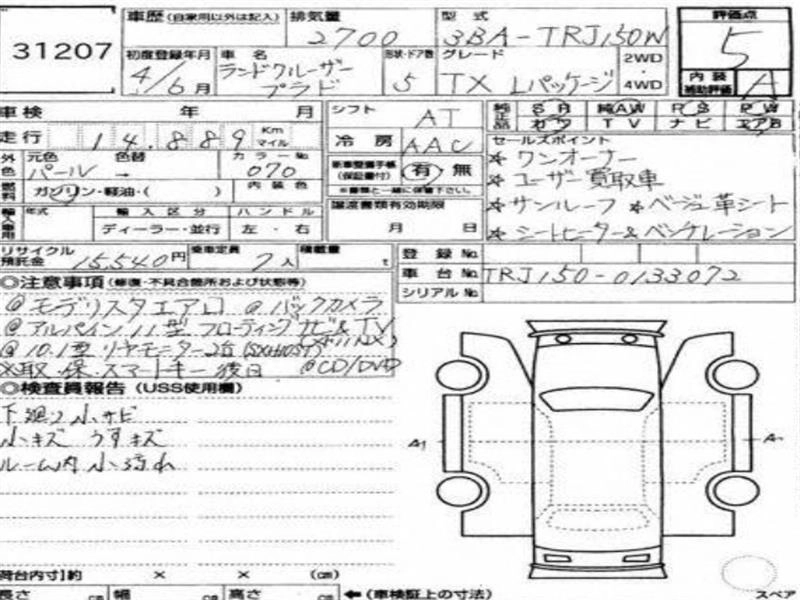 31207
車歴 (自家用以外は記入) 排気量 2700 型式 3BA-TRJ150W 評価点 5
初度登録年月 4/6月 車名 ランドクルーザープラド 形状・ドア数 5 グレード TX Lパッケージ 2WD・4WD 内装補助評価 A
車検 年 月 シフト AT 純正品 SR 純AW PS PW
カワ TV ナビ エアB
走行 14.889 Km マイル 冷房 AAC セールスポイント
外色 元色 パール 色替 → カラーNo. 070 新車整備手帳 (保証書付) 有 無 ※書類と一緒に保管下さい。
＊ワンオーナー
燃料 ガソリン・軽油・( ) 内装色 ＊ユーザー買取車
輸入車用 年式 輸入区分 ハンドル 譲渡書類有効期限 ＊サンルーフ ＊ベージュ革シート
ディーラー・並行 左・右 月 日 ＊シートヒーター&ベンチレーション
リサイクル預託金 15,540円 乗車定員 7人 積載量 t 登録No.
車台No. TRJ150-0133072
シリアルNo.
◎注意事項 (修復・不具合箇所および状態等)
@モデリスタエアロ @バックカメラ
@アルパイン11型フローティングナビ&TV
@10.1型リヤモニター2台
※取・保・スマートキー後日 @CD/DVD
◎検査員報告 (USS使用欄)
下廻り小サビ
小キズ うすキズ
ルーム内小汚れ
A1
荷台内寸)約 × × (cm)
長さ cm 幅 cm 高さ cm ←(車検証上の寸法)
スペア